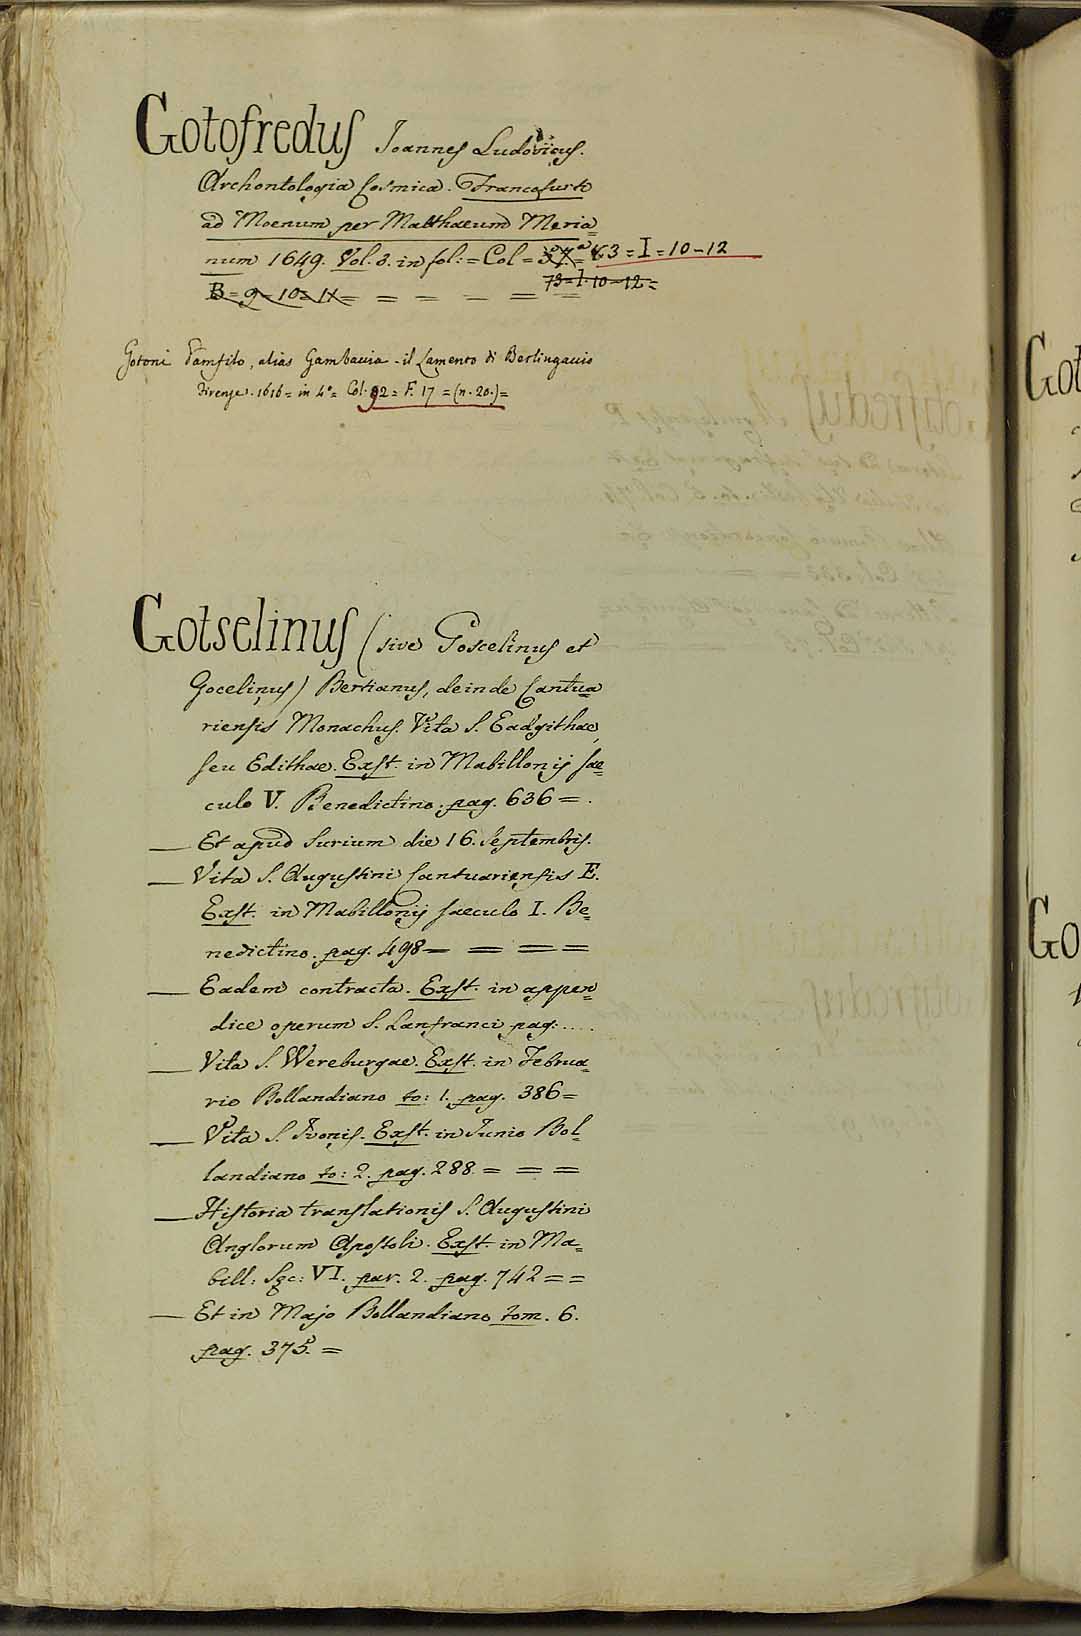 Gotofredus Joannes Ludovicus.
Archontologia Cosmica. Francofurti
ad Moenum per Matthaeum Meria=
num 1649. Vol. 3. in fol: = Col = 37.a = 63 = I = 10-12
73 = I. 10-12 =
B = 9 = 10 = 11 = = = = = =
Gotoni Pamfilo, alias Gambaccia - il Lamento di Berlingaccio
Firenze. 1616 = in 4º = Col. 92 = F. 17 = (n. 20.) =
Gotselinus (sive Goscelinus et
Gocelinus) Bertianus, deinde Cantua=
riensis Monachus. Vita S. Eadgithae,
seu Edithae. Exst. in Mabillonij sae=
culo V. Benedictino. pag. 636 = .
— Et apud Surium die 16. Septembris.
— Vita S. Augustini Cantuariensis E.
Exst. in Mabillonij saeculo I. Be=
nedictino. pag. 498 — = = =
— Eadem contracta. Exst. in appen=
dice operum S. Lanfranci pag: ....
— Vita S. Wereburgae. Exst. in Februa=
rio Bollandiano to: 1. pag. 386 =
— Vita S. Ivonis. Exst. in Junio Bol=
landiano to: 2. pag. 288 = = =
— Historia translationis S. Augustini
Anglorum Apostoli. Exst. in Ma=
bill: Sęc: VI. par. 2. pag. 742 = =
— Et in Majo Bollandiano tom. 6.
pag. 375. =
Got
Go